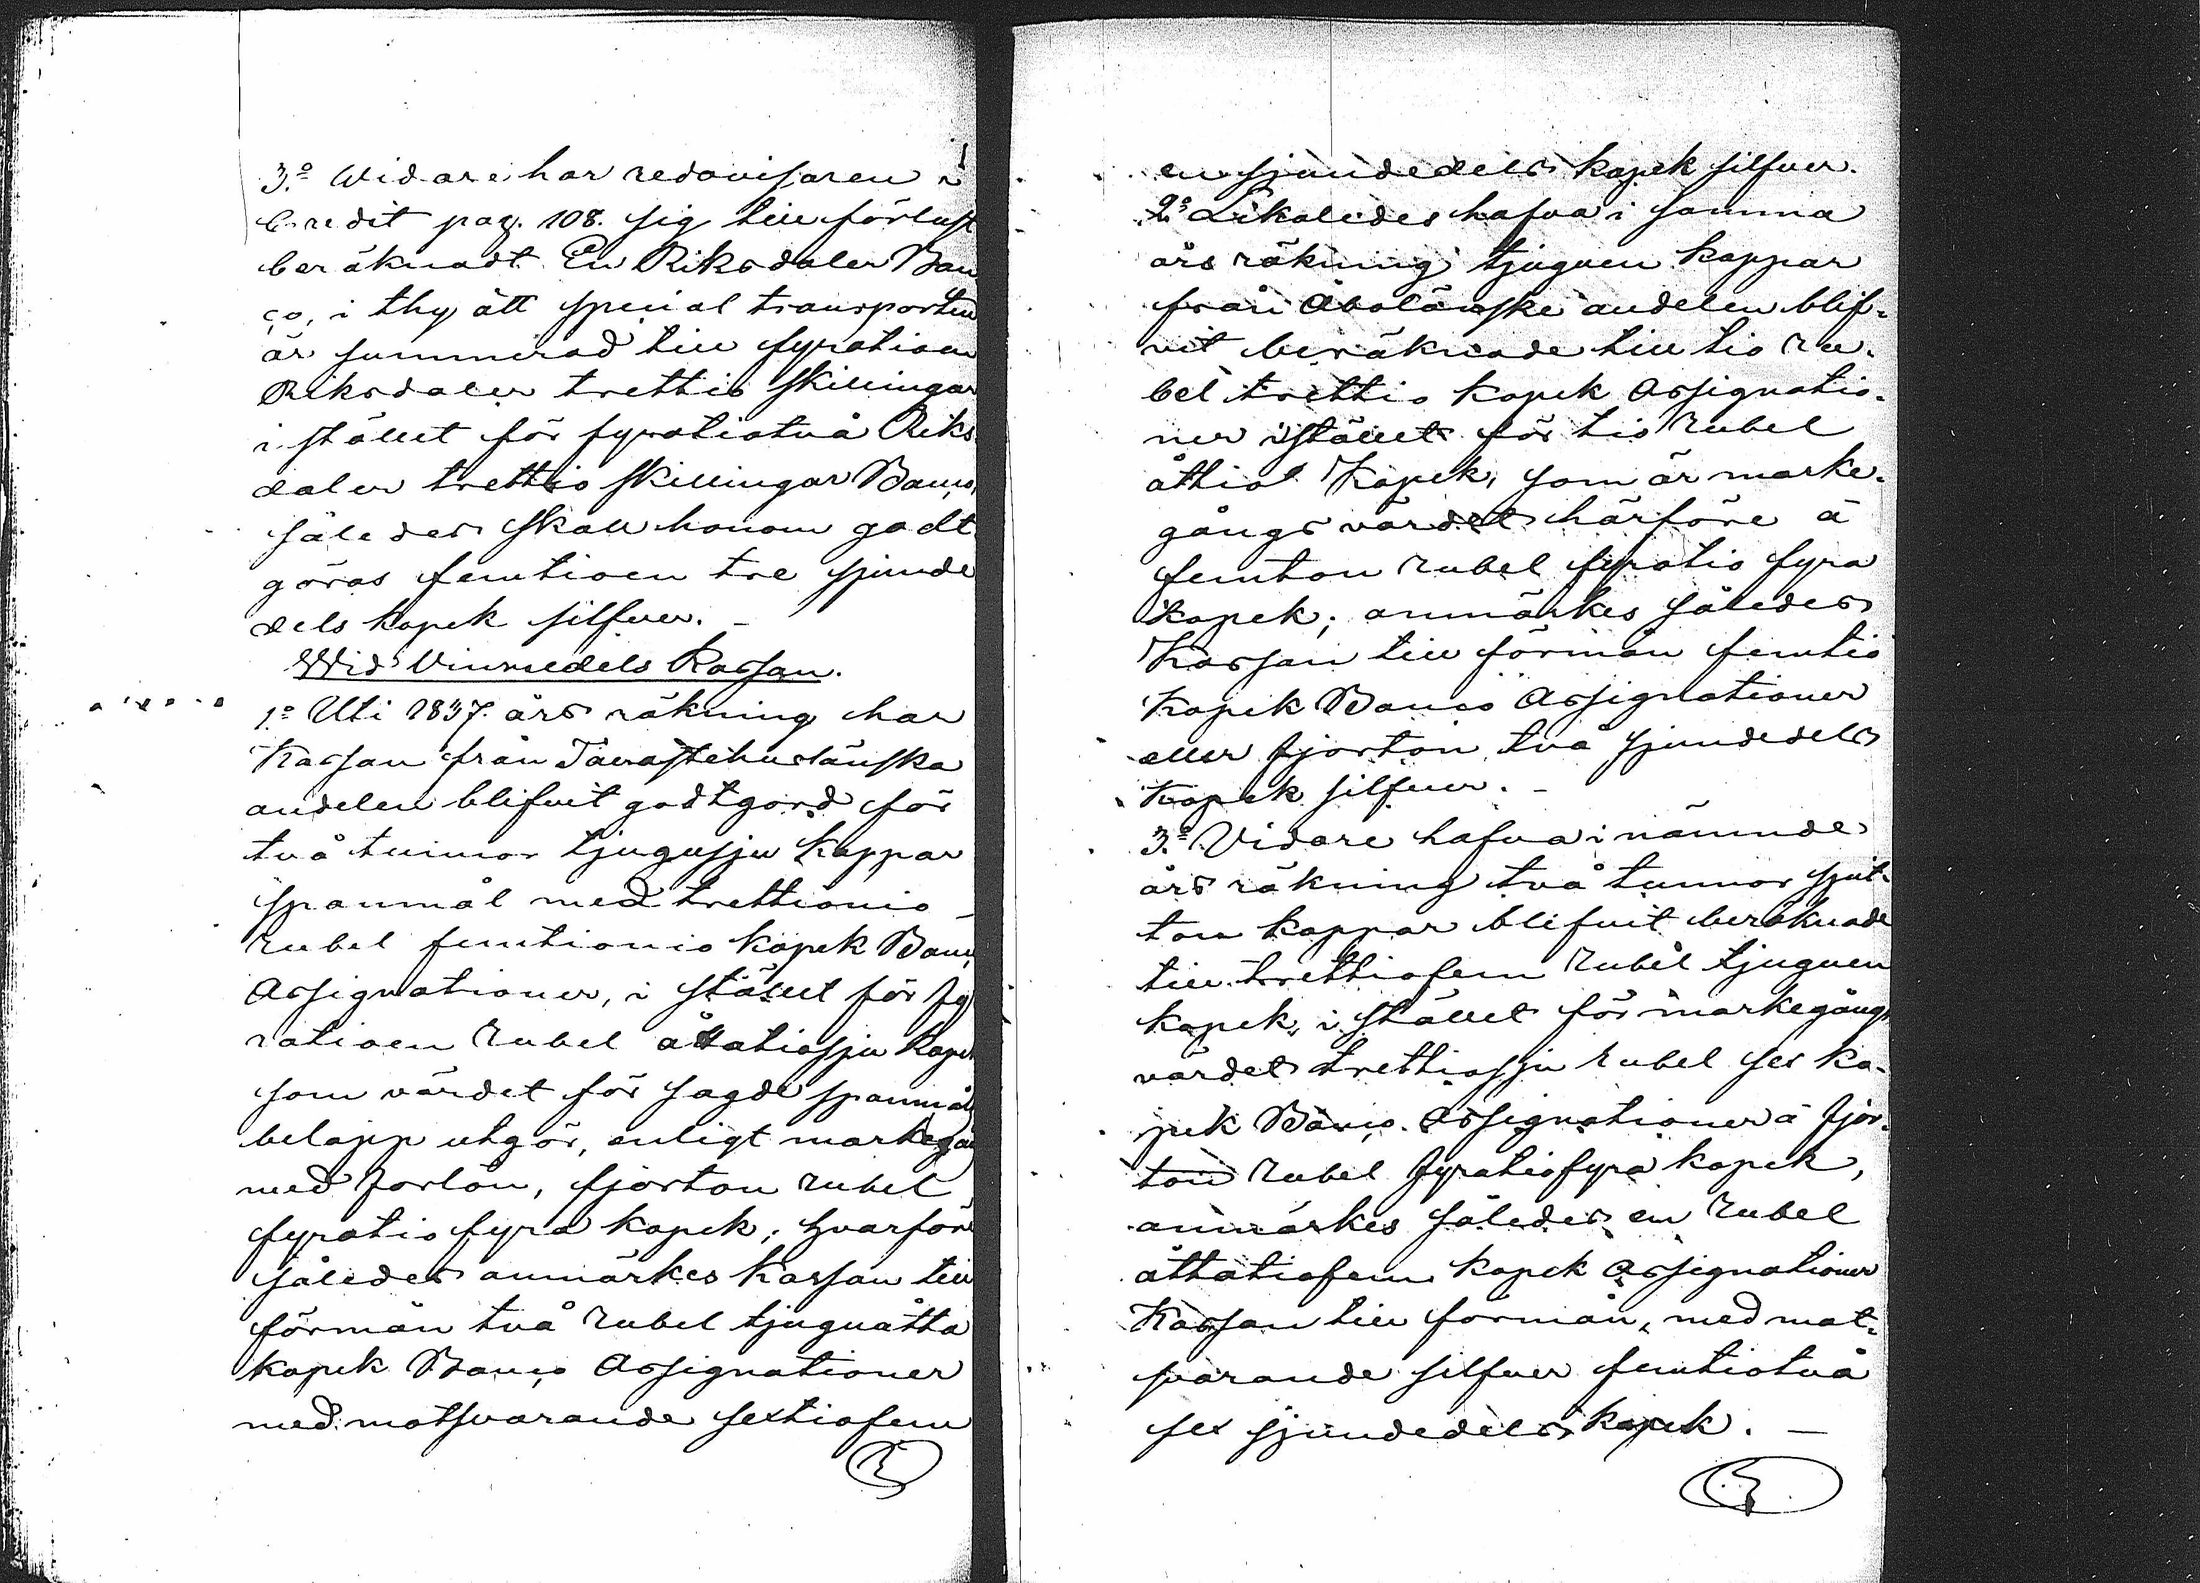 3:o Widare har redovisaren i
Credit pag. 108. sig till förlust
beräknadt En Riksdaler Ban
co, i thy att special transporten
är summerad till fyratioen
Riksdaler trettio skillingar
i stället för fyratiotvå Riks
daler trettio skillingar Banco,
således skall honom godt
göras femtioen tre sjunde
dels kopek silfver. –
Wid Vinmedels Kassan.
1:o Uti 1837. års räkning har
Kassan från Tavastehuslänska
andelen blifvit godtgord för
två tunnor tjugusju kappar
spanmål med trettionio
rubel femtionio kopek Banco
Assignationer, i stället för fy
ratioen rubel åttatiosju kopek
som värdet för sagde spanmåls
belopp utgör, enligt markegån
med forlön, fjorton rubel
fyratiofyra kopek; hvarföre
således anmärkes Kassan till
förmån två rubel tjuguåtta
kopek Banco Assignationer
med motsvarande sextiofem
en sjundedels kopek silfver.
2:o Likaledes hafva i samma
års räkning tjuguen kappar
från Åbolänske andelen blif-
vit beräknade till tio ru-
bel trettio kopek Assignatio-
ner istället för tio rubel
åttio kopek, som är marke-
gångsvärdet härföre á
femton rubel fyratio fyra
kopek; anmärkes således
Kassan till förmån femtio
kopek Banco Assignationer
eller fjorton två sjundedels
kopek silfver. –
3:o Vidare hafva i nämnde
års räkning två tunnor sjut-
ton kappar blifvit beräknade
till trettiofem rubel tjuguen
kopek, i stället för markegångs
värdet trettiosju rubel sex ko-
pek Banco Assignationer á fjor-
ton rubel fyratiofyra kopek,
anmärkes således en rubel
åttatiofem kopek Assignationer
Kassan till förmån, med mot-
svarande silfver femtiotvå
sex sjundedels kopek. –